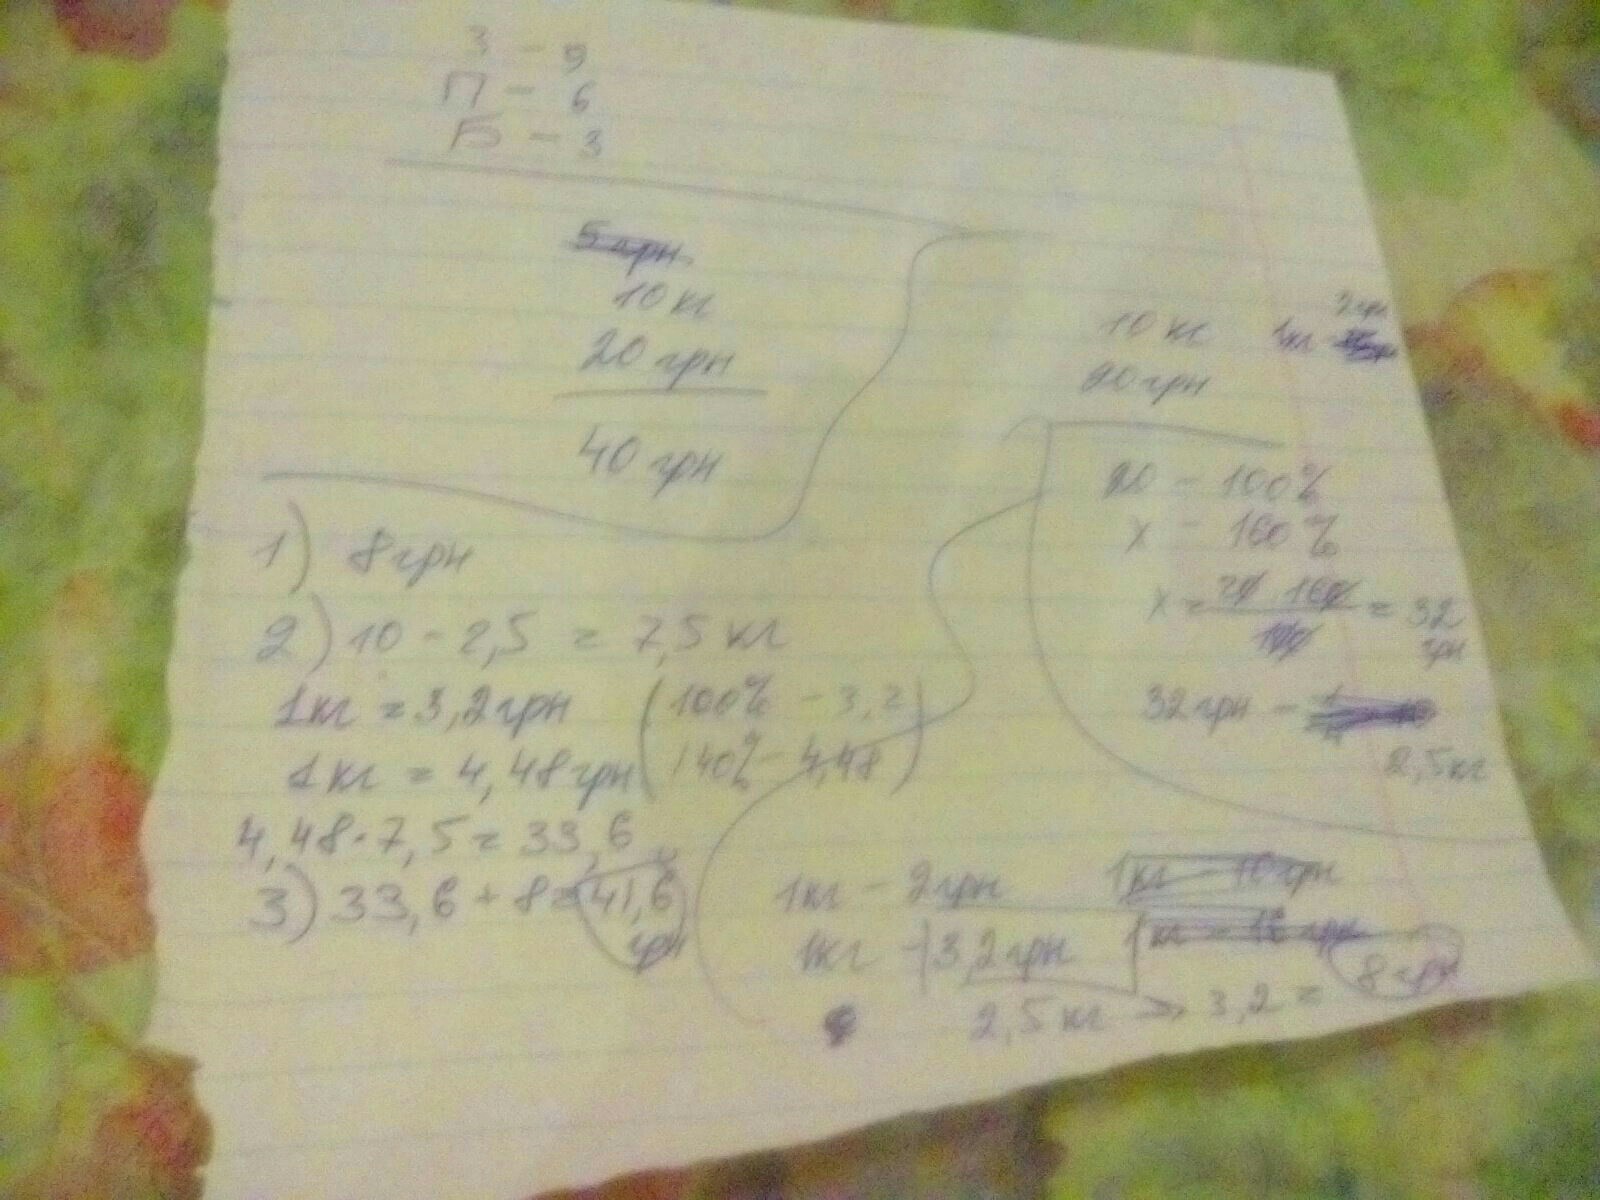 З - 9
П - 6
Б - 3
5 грн.
10 кг
20 грн
40 грн
10 кг 1кг
20 грн
20 - 100%
x - 160%
x = 20 · 160 / 100 = 32 грн
32 грн -
2,5кг
1) 8 грн
2) 10 - 2,5 = 7,5 кг
1кг = 3,2 грн (100% - 3,2
1кг = 4,48 грн 140% - 4,48)
4,48 · 7,5 = 33,6
3) 33,6 + 8 = 41,6 грн
1кг - 2 грн 1кг - 10 грн
1кг - 3,2 грн 1кг - 16 грн
2,5 кг → 3,2 = 8 грн